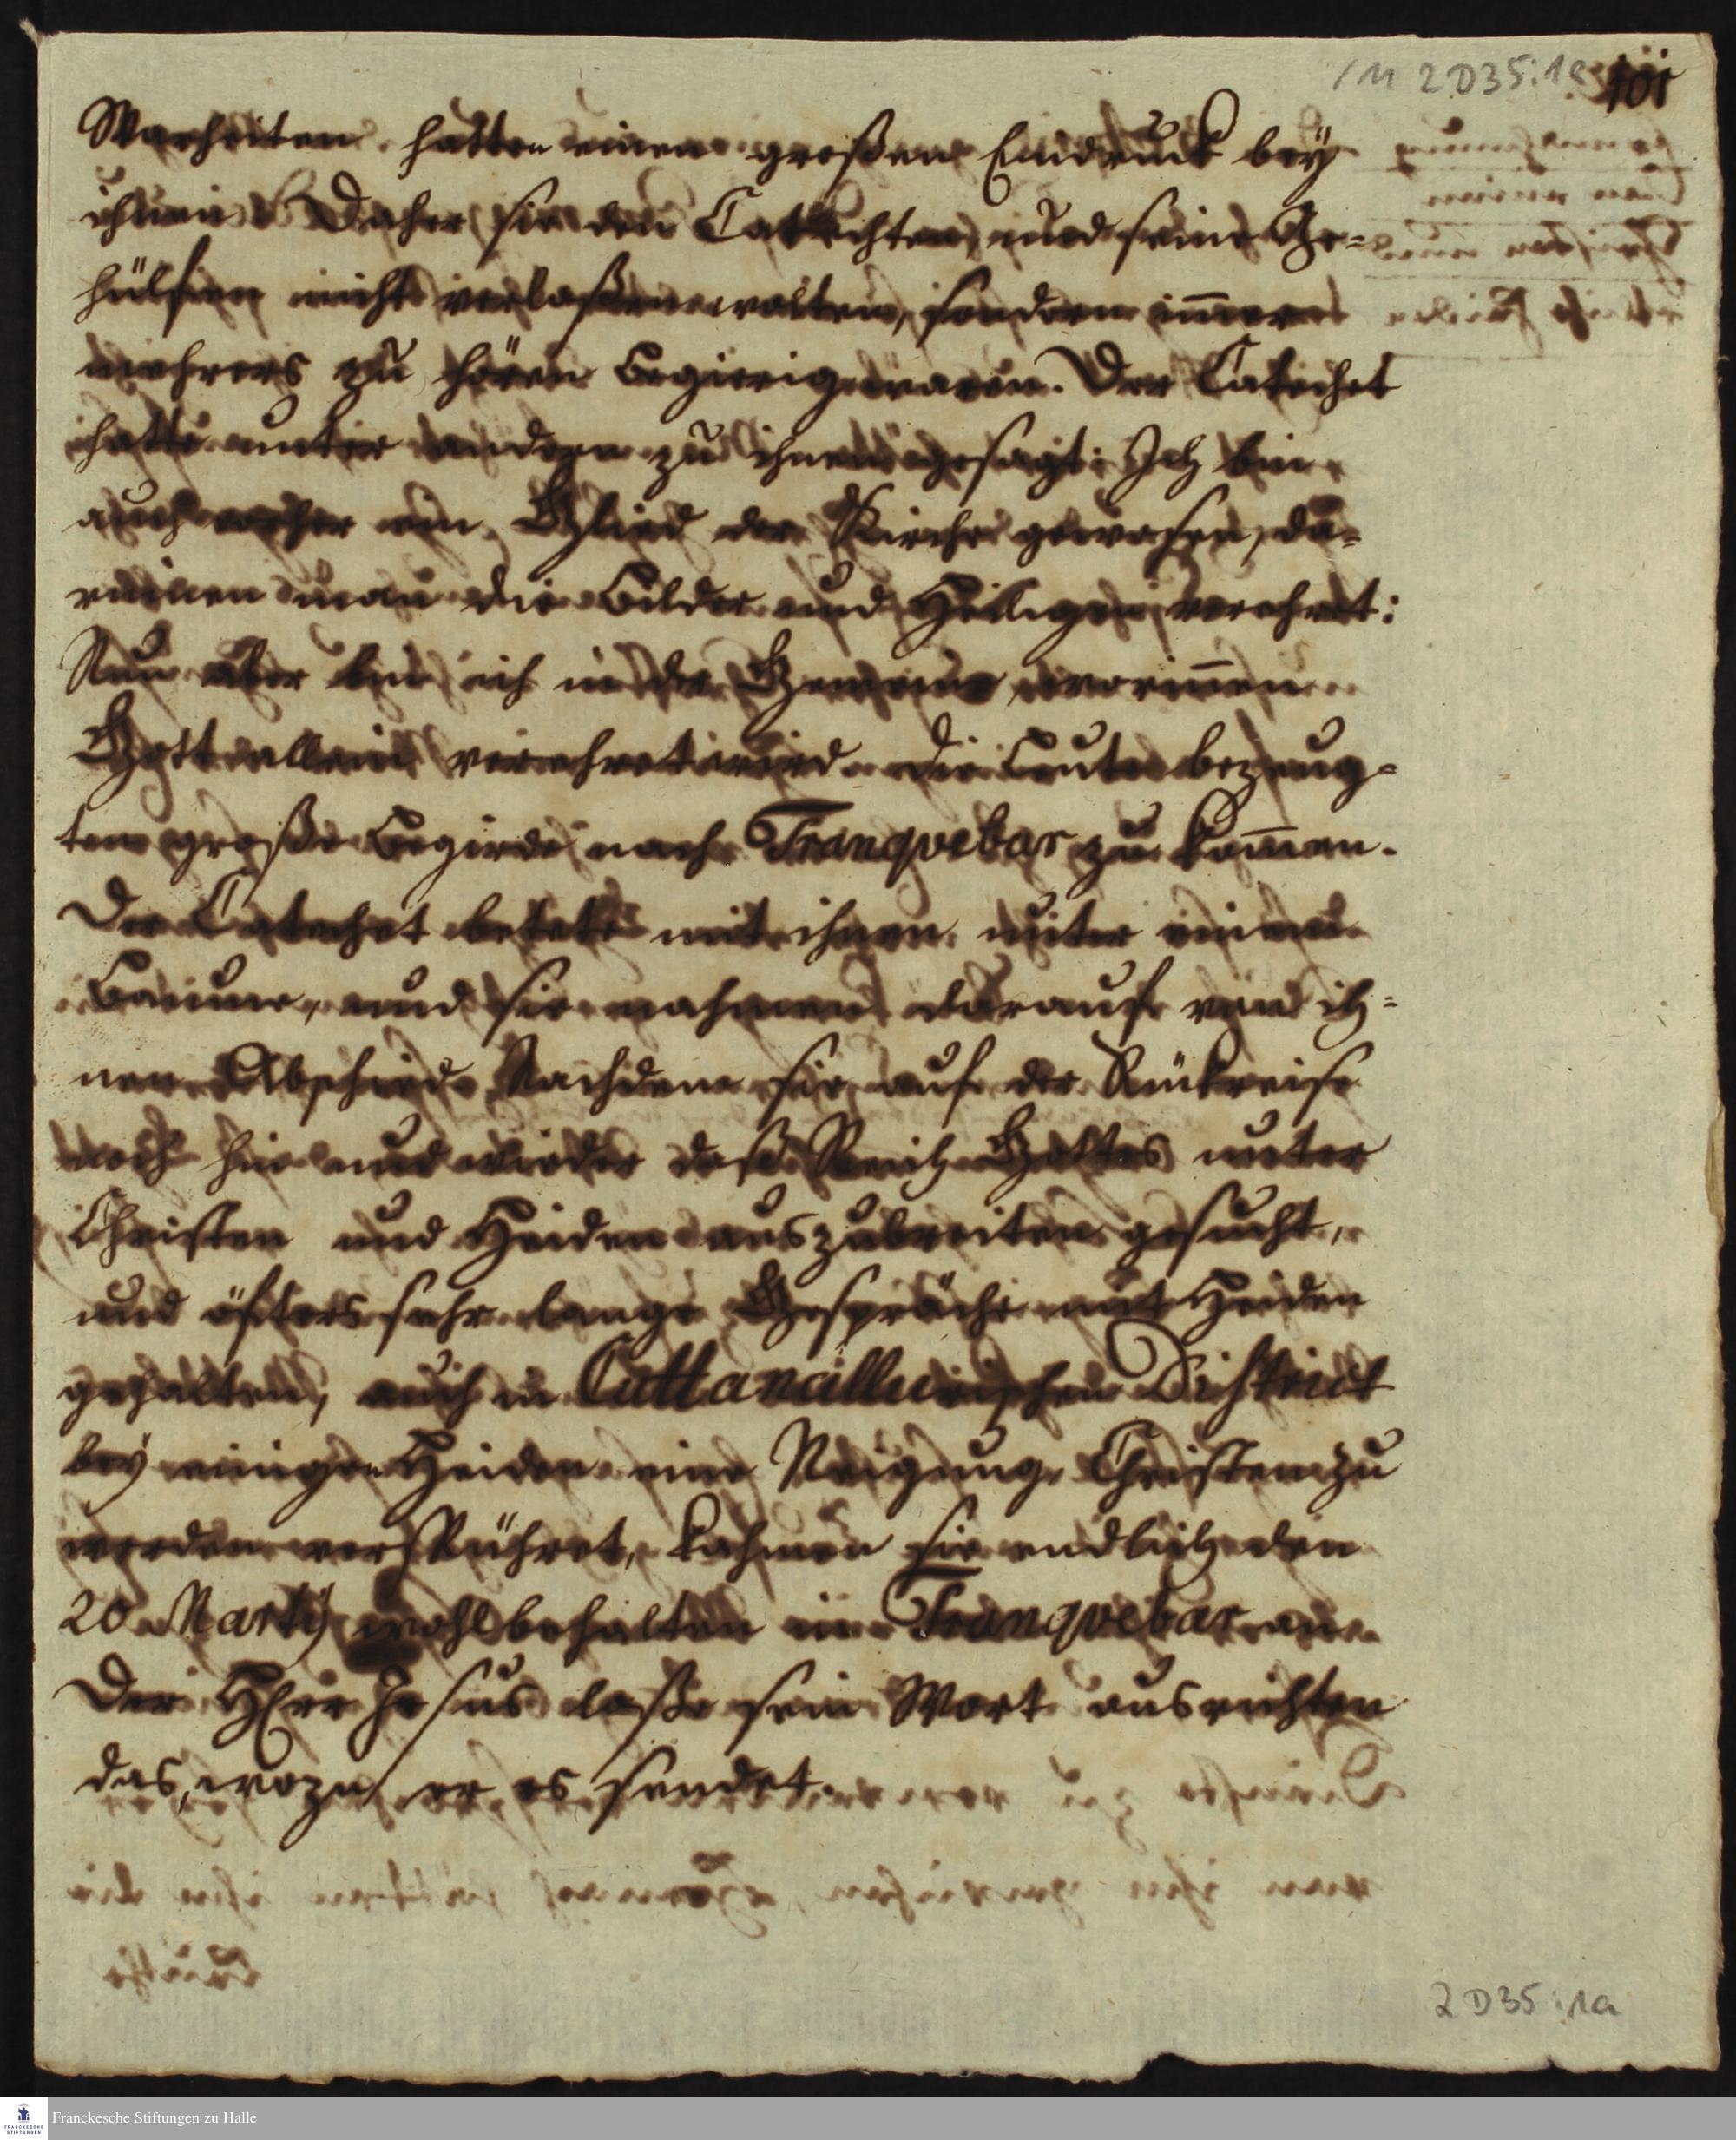 /M 2 D35:1a 101
Warheiten hatten einen großen Eindruck bey
ihnen. Daher sie den Catecheten, und seine Ge=
hülfen nicht verlaßen wolten, sondern im̄er
mehrers zu hören begierig waren. Der Catechet
hatte unter andern zu ihnen gesagt: Ich bin
auch vorher ein Glied der Kirche gewesen, da=
rinnen man die Bilder und Heiligen verehret:
Nun aber bin ich in der Gemeine, worin̄en
Gott allein verehret wird. Die Leute bezeug=
ten große Begierde nach Tranquebar zu kom̄en.
Der Catechet betete mit ihnen unter einem
Baume, und sie nahmen darauf von ih=
nen Abschied. Nachdem sie auf der Rükreise
noch hie und wieder daß Reich Gottes unter
Christen und Heiden auszubreiten gesucht,
und öfters sehr lange Gespräche mit Heiden
gehalten, auch in Cuttanallurischen District
bey einigen Heiden eine Neigung Christen zu
werden verspühret, kahmen sie endlich den
20 Martij wohlbehalten in Tranquebar an.
Der HErr Jesus laße sein Wort ausrichten
das, wozu er es sendet.
2 D35:1a
Franckesche Stiftungen zu Halle